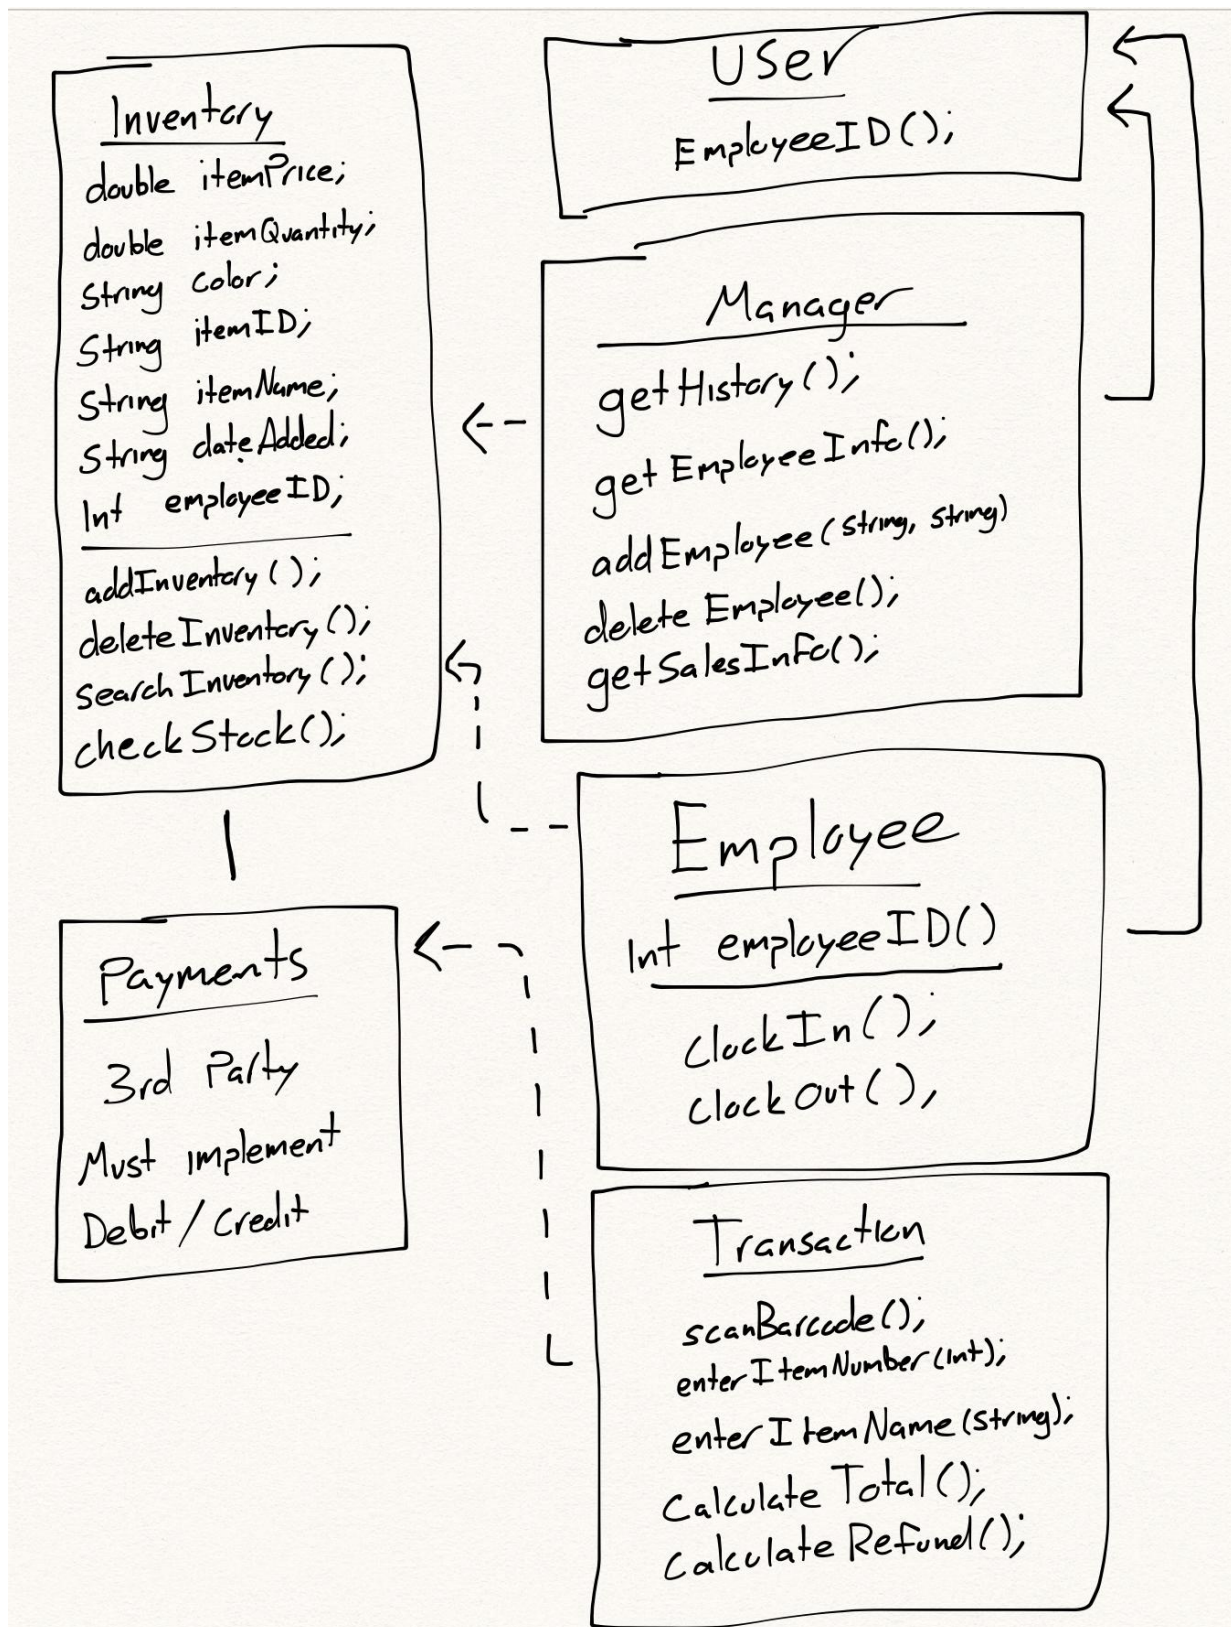 Inventory
double itemPrice;
double itemQuantity;
String Color;
String itemID;
String itemName;
String dateAdded;
Int employeeID;
addInventory();
deleteInventory();
searchInventory();
checkStock();
Payments
3rd Party
Must implement
Debit/Credit
User
EmployeeID();
Manager
getHistory();
getEmployeeInfo();
addEmployee(string, string)
deleteEmployee();
getSalesInfo();
Employee
Int employeeID()
ClockIn();
ClockOut(),
Transaction
scanBarcode();
enterItemNumber(int);
enterItemName(string);
CalculateTotal();
CalculateRefund();